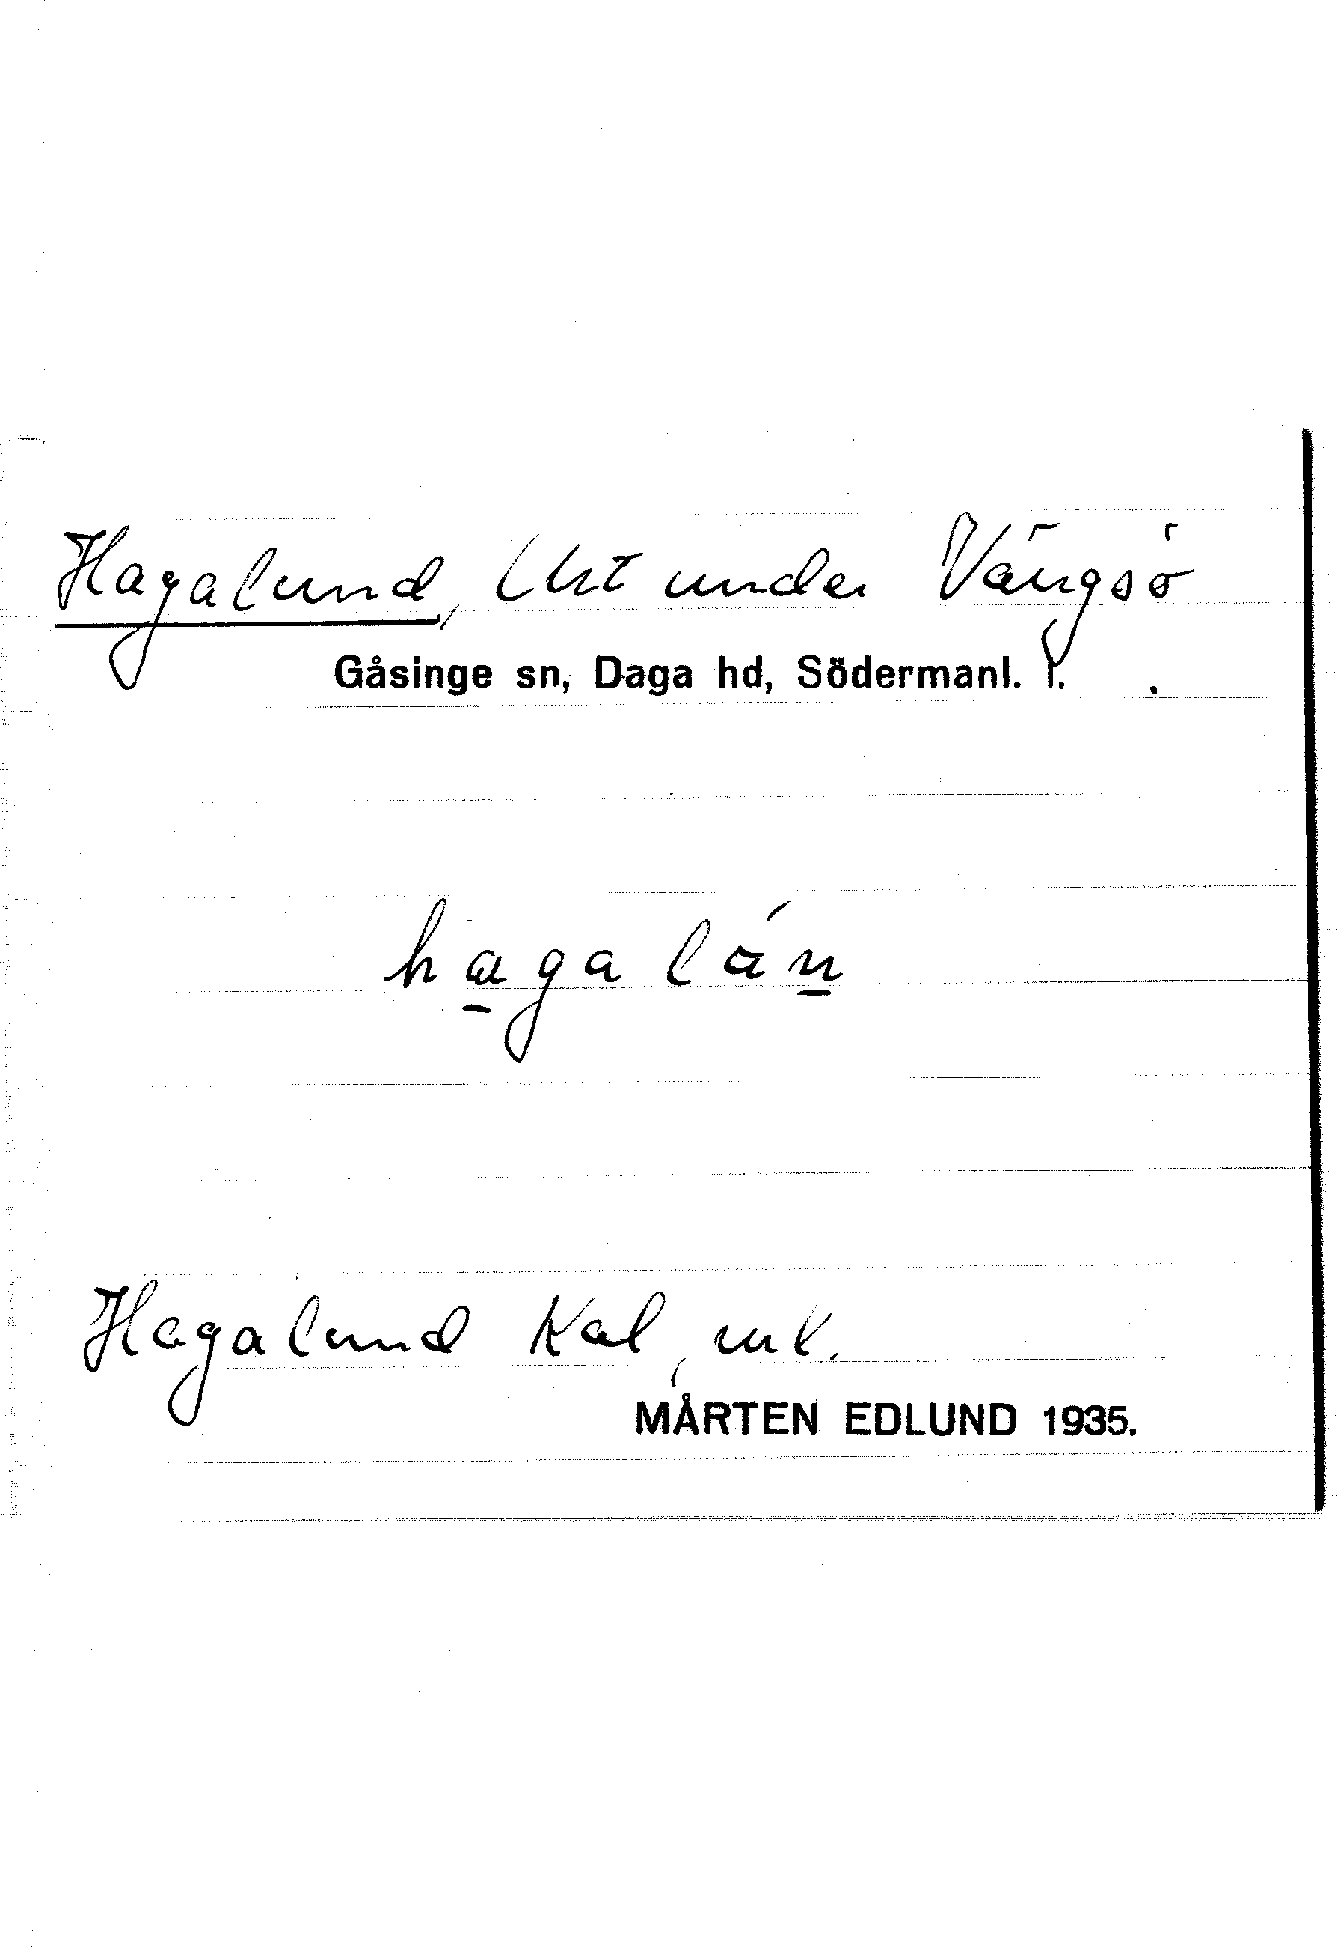 Hagalund, Uht under Vängsö
Gåsinge sn, Daga hd, Södermanl. l.
hagalán
Hagalund Kal, ml.
MÅRTEN EDLUND 1935.